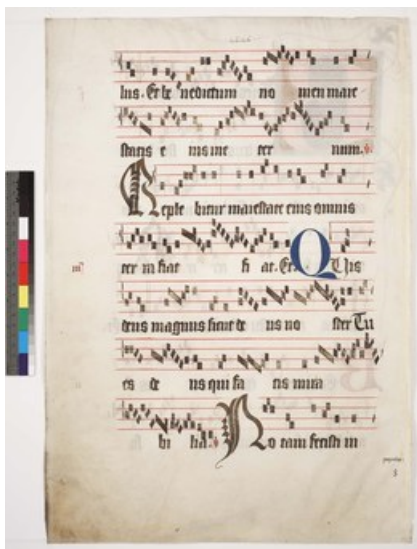 lus. Et be nedictum no men maie
statis e ius in e ter num. ℣.
Reple bitur maiestate eius omnis
ter ra fiat fi at. Et. Quis
deus magnus sicut de us no ster Tu
es de us qui fa cis mira
bi lia. ℣ No tam fecisti in